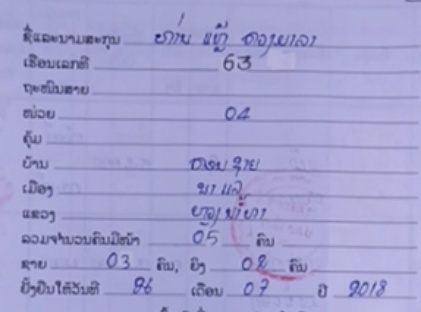 ຊື່ແລະນາມສະກຸນ ທ່ານ ແກ້ວ
ເຮືອນເລກທີ 63
ຖະໜົນສາຍ
ໜ່ວຍ 04
ຄຸ້ມ
ບ້ານ ດອນຊາຍ
ເມືອງ ນາແລ
ແຂວງ ຫຼວງນໍ້າທາ
ລວມຈຳນວນຄົນມີໜ້າ 05 ຄົນ
ຊາຍ 03 ຄົນ, ຍິງ 02 ຄົນ
ຢັ້ງຢືນໃຫ້ວັນທີ 26 ເດືອນ 07 ປີ 2018